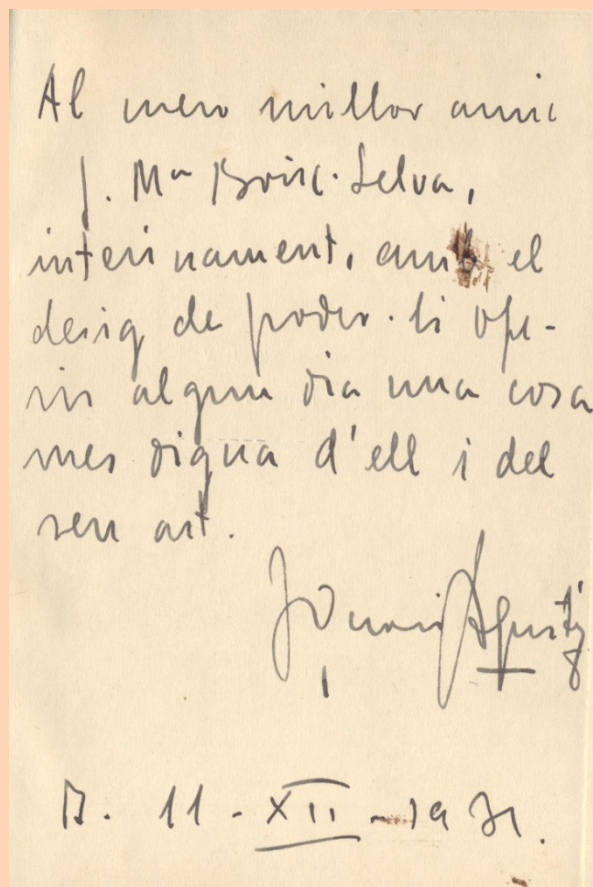 Al meu millor amic
J. Mª Boix-Selva,
interinament, amb el
desig de poder-li ofe-
rir algun dia una cosa
mes digna d'ell i del
seu art.
Ignasi Agustí
B. 11-XII-1931.